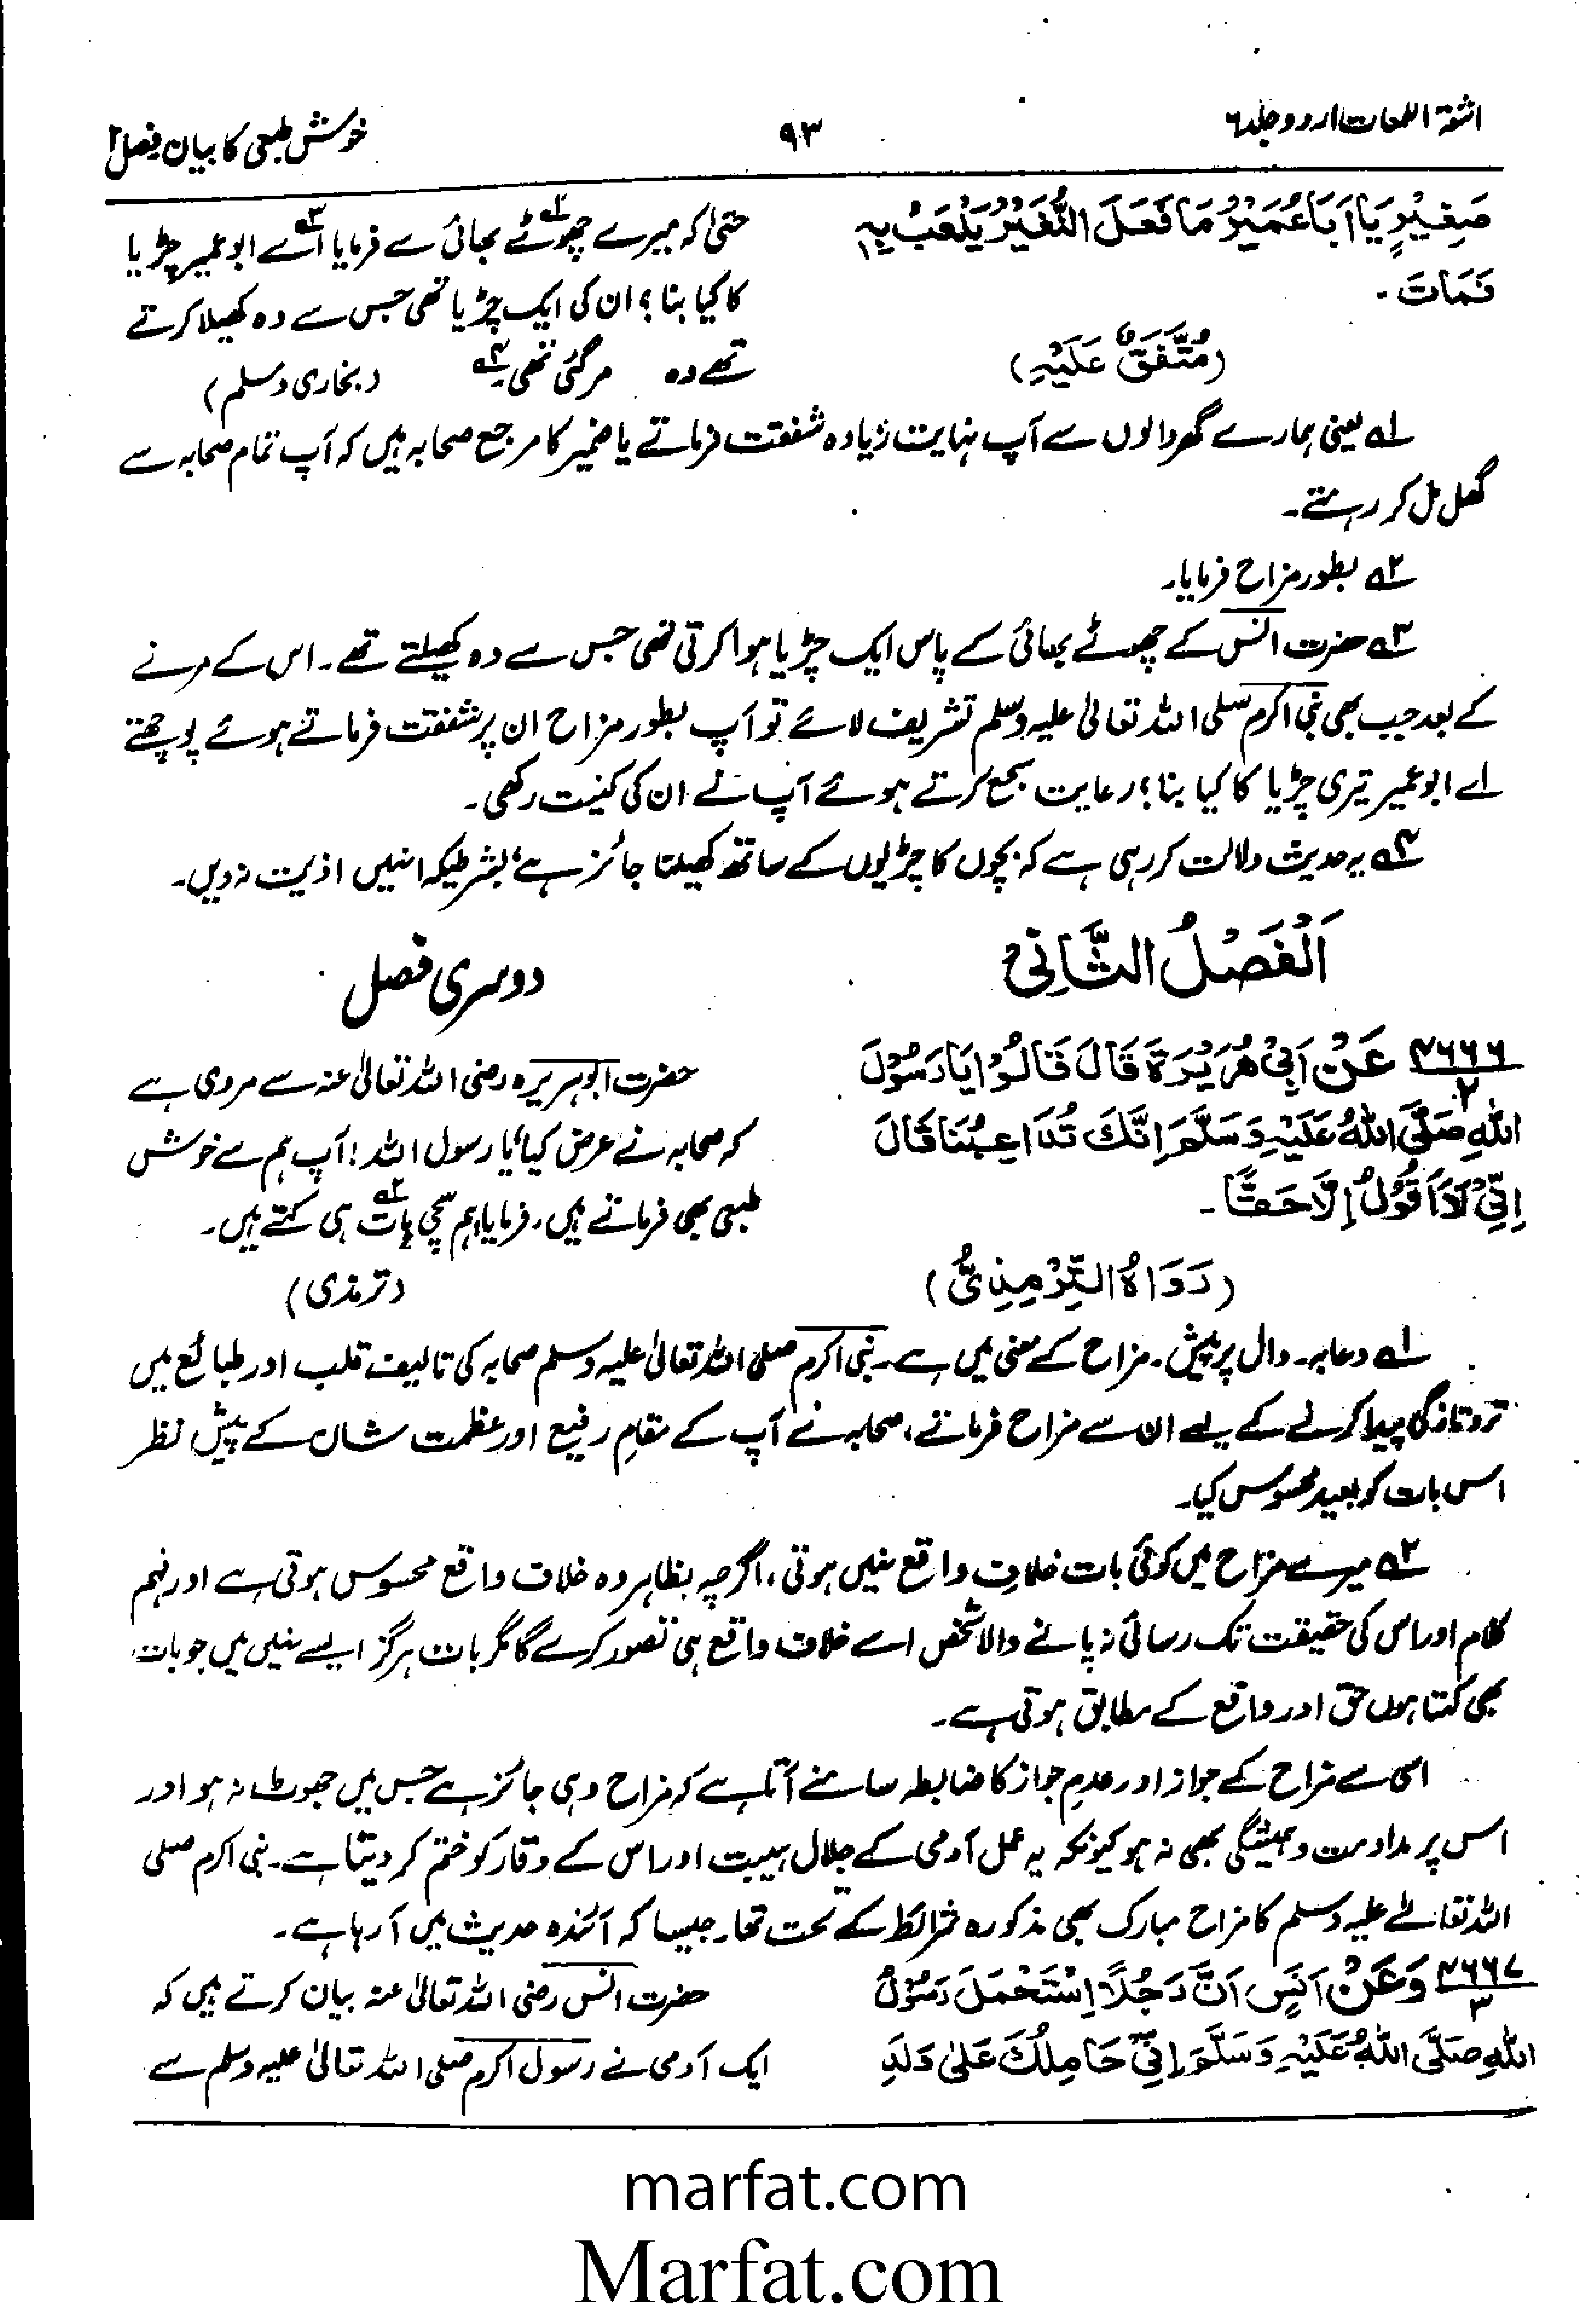 اشعۃ اللمعات اردو جلد ۶
۹۳
خوش طبعی کا بیان فصل ۱
صَغِيْرٍ يَا اَبَا عُمَيْرُ مَا فَعَلَ النُّغَيْرُ يَلْعَبُ بِهٖ
فَمَاتَ۔
(مُتَّفَقٌ عَلَيْهِ)
حتیٰ کہ میرے چھوٹے بھائی سے فرمایا اے ابو عمیر چڑیا
کا کیا بنا؟ ان کی ایک چڑیا تھی جس سے وہ کھیلا کرتے
تھے وہ مرگئی تھی۴ (بخاری و مسلم)
۱ یعنی ہمارے گھر والوں سے آپ نہایت زیادہ شفقت فرماتے یا ضمیر کا مرجع صحابہ ہیں کہ آپ تمام صحابہ سے
گھل مل کر رہتے۔
۲ بطور مزاح فرمایا۔
۳ حضرت انس کے چھوٹے بھائی کے پاس ایک چڑیا ہوا کرتی تھی جس سے وہ کھیلتے تھے۔ اس کے مرنے
کے بعد جب بھی نبی اکرم صلی اللہ تعالیٰ علیہ وسلم تشریف لائے تو آپ بطور مزاح ان پر شفقت فرماتے ہوئے پوچھتے
اے ابو عمیر تیری چڑیا کا کیا بنا؟ رعایت سجع کرتے ہوئے آپ نے ان کی کنیت رکھی۔
۴ یہ حدیث دلالت کر رہی ہے کہ بچوں کا چڑیوں کے ساتھ کھیلنا جائز ہے، بشرطیکہ انہیں اذیت نہ دیں۔
اَلْفَصْلُ الثَّانِيْ
دوسری فصل
۴۶۶۶/۲ عَنْ اَبِيْ هُرَيْرَةَ قَالَ قَالُوْا يَا رَسُوْلَ
اللّٰهِ صَلَّى اللّٰهُ عَلَيْهِ وَسَلَّمَ اِنَّكَ تُدَاعِبُنَا قَالَ
اِنِّيْ لَا اَقُوْلُ اِلَّا حَقًّا۔
(رَوَاهُ التِّرْمِذِيُّ)
حضرت ابوہریرہ رضی اللہ تعالیٰ عنہ سے مروی ہے
کہ صحابہ نے عرض کیا یا رسول اللہ! آپ ہم سے خوش
طبعی بھی فرماتے ہیں، فرمایا ہم سچی بات۲ ہی کہتے ہیں۔
(ترمذی)
۱ دعابہ۔ دال پر پیش۔ مزاح کے معنی میں ہے۔ نبی اکرم صلی اللہ تعالیٰ علیہ وسلم صحابہ کی تالیف قلب اور طبائع میں
تروتازگی پیدا کرنے کے لیے ان سے مزاح فرماتے، صحابہ نے آپ کے مقامِ رفیع اور عظمت شان کے پیش نظر
اس بات کو بعید محسوس کیا۔
۲ میرے مزاح میں کوئی بات خلافِ واقع نہیں ہوتی، اگرچہ بظاہر وہ خلاف واقع محسوس ہوتی ہے اور فہم
کلام اور اس کی حقیقت تک رسائی نہ پانے والا شخص اسے خلاف واقع ہی تصور کرے گا مگر بات ہرگز ایسے نہیں میں جو بات
بھی کہتا ہوں حق اور واقع کے مطابق ہوتی ہے۔
اسی سے مزاح کے جواز اور عدمِ جواز کا ضابطہ سامنے آتا ہے کہ مزاح وہی جائز ہے جس میں جھوٹ نہ ہو اور
اس پر مداومت و ہمیشگی بھی نہ ہو کیونکہ یہ عمل آدمی کے جلال ہیبت اور اس کے وقار کو ختم کر دیتا ہے۔ نبی اکرم صلی
اللہ تعالےٰ علیہ وسلم کا مزاح مبارک بھی مذکورہ شرائط کے تحت تھا۔ جیسا کہ آئندہ حدیث میں آرہا ہے۔
۴۶۶۷/۳ وَعَنْ اَنَسٍ اَنَّ رَجُلًا اِسْتَحْمَلَ رَسُوْلَ
اللّٰهِ صَلَّى اللّٰهُ عَلَيْهِ وَسَلَّمَ اِنِّيْ حَامِلُكَ عَلٰى وَلَدِ
حضرت انس رضی اللہ تعالیٰ عنہ بیان کرتے ہیں کہ
ایک آدمی نے رسول اکرم صلی اللہ تعالیٰ علیہ وسلم سے
marfat.com
Marfat.com